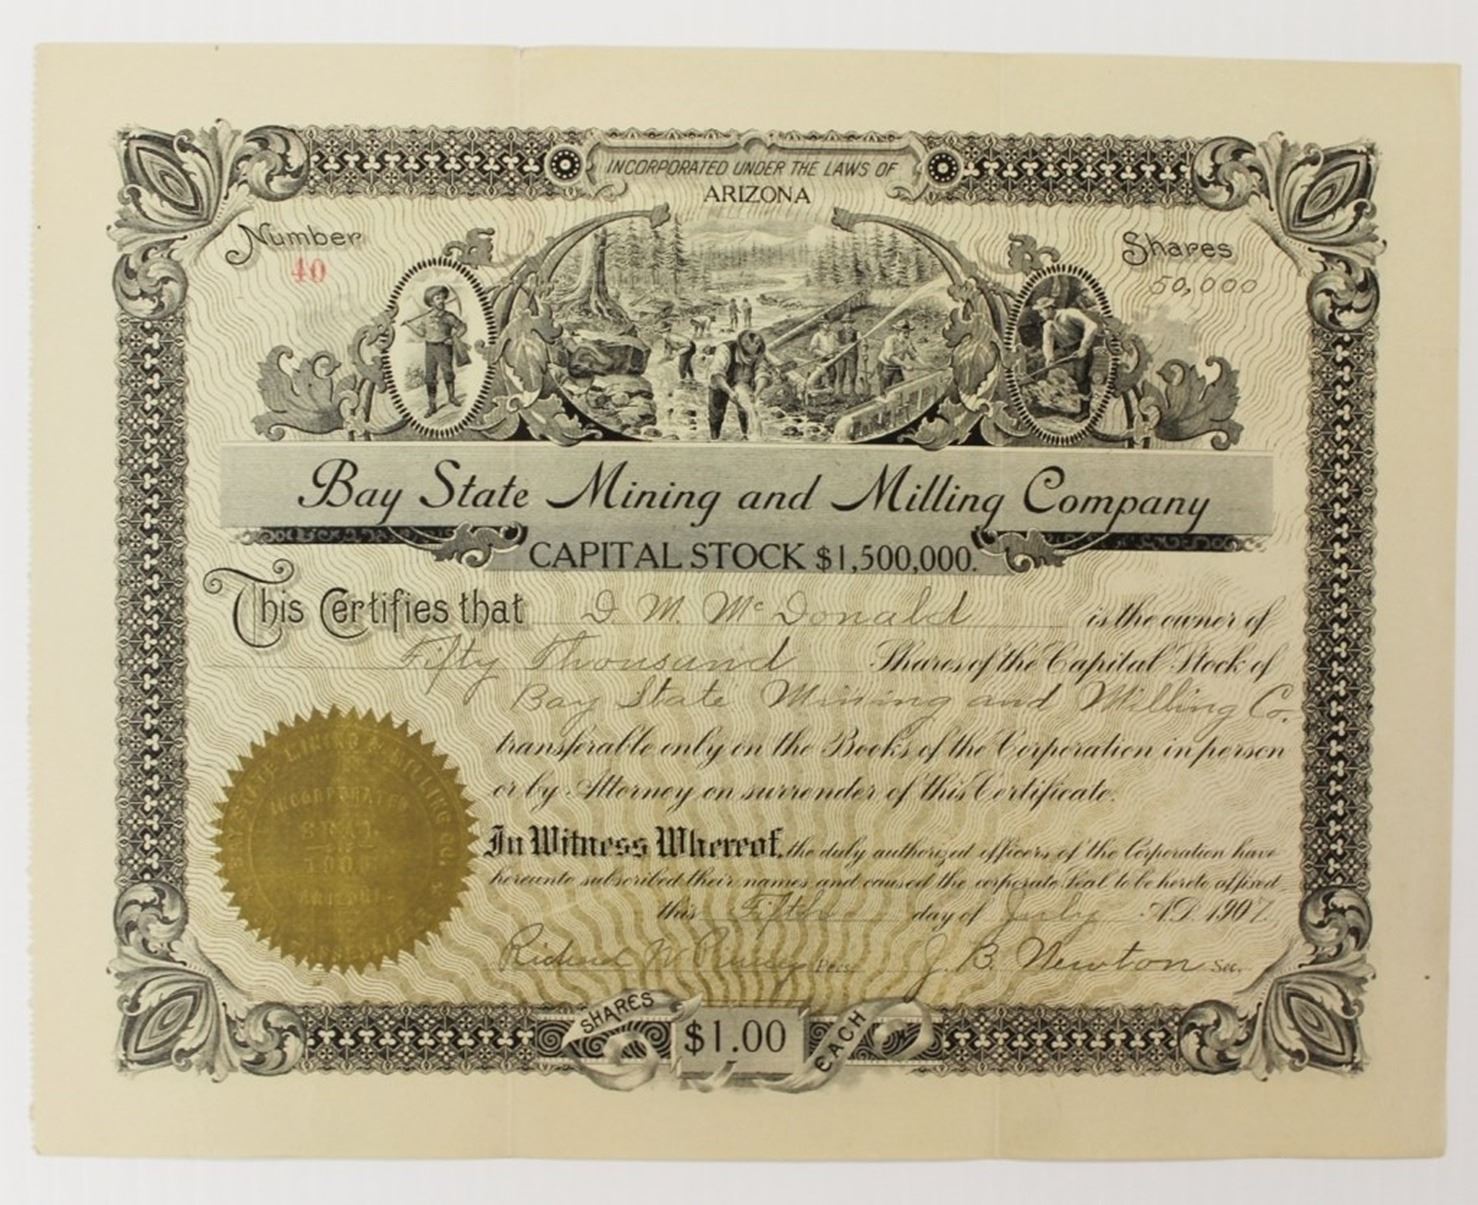 INCORPORATED UNDER THE LAWS OF
ARIZONA
Number
40
Shares
50,000
Bay State Mining and Milling Company
CAPITAL STOCK $1,500,000.
This Certifies that D. M. McDonald is the owner of
Fifty Thousand Shares of the Capital Stock of
Bay State Mining and Milling Co.
transferable only on the Books of the Corporation in person
or by Attorney on surrender of this Certificate.
In Witness Whereof, the duly authorized officers of the Corporation have
hereunto subscribed their names and caused the corporate Seal to be hereto affixed
this Fifth day of July A.D. 1907.
Richard W. Pres. J. B. Newton Sec.
BAY STATE MINING & MILLING CO.
INCORPORATED
SEAL
SHARES $1.00 EACH